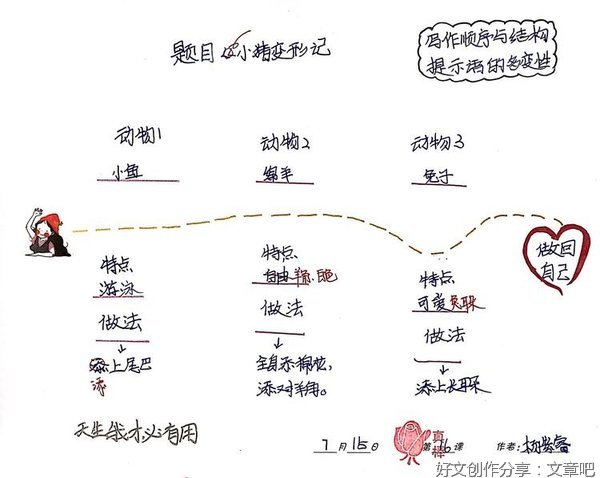 题目 小猪变形记
写作顺序与结构
提示语的多变性
动物1
小鱼
动物2
绵羊
动物3
兔子
特点
游泳
做法
添上尾巴
添
特点
自由
做法
全身示棉花,
添对羊角。
特点
可爱
做法
添上长耳朵
做回
自己
天生我才必有用
7月15日
真棒
第16课
作者:
好文创作分享:文章吧